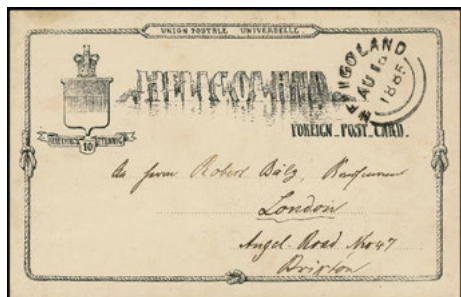 UNION POSTALE UNIVERSELLE
HELIGOLAND
AU 18
1885
HELIGOLAND
FOREIGN POST CARD.
10 PFENNIG
An Herrn Robert Bälz, Kaufmann
London
Angel Road No 47
Brixton